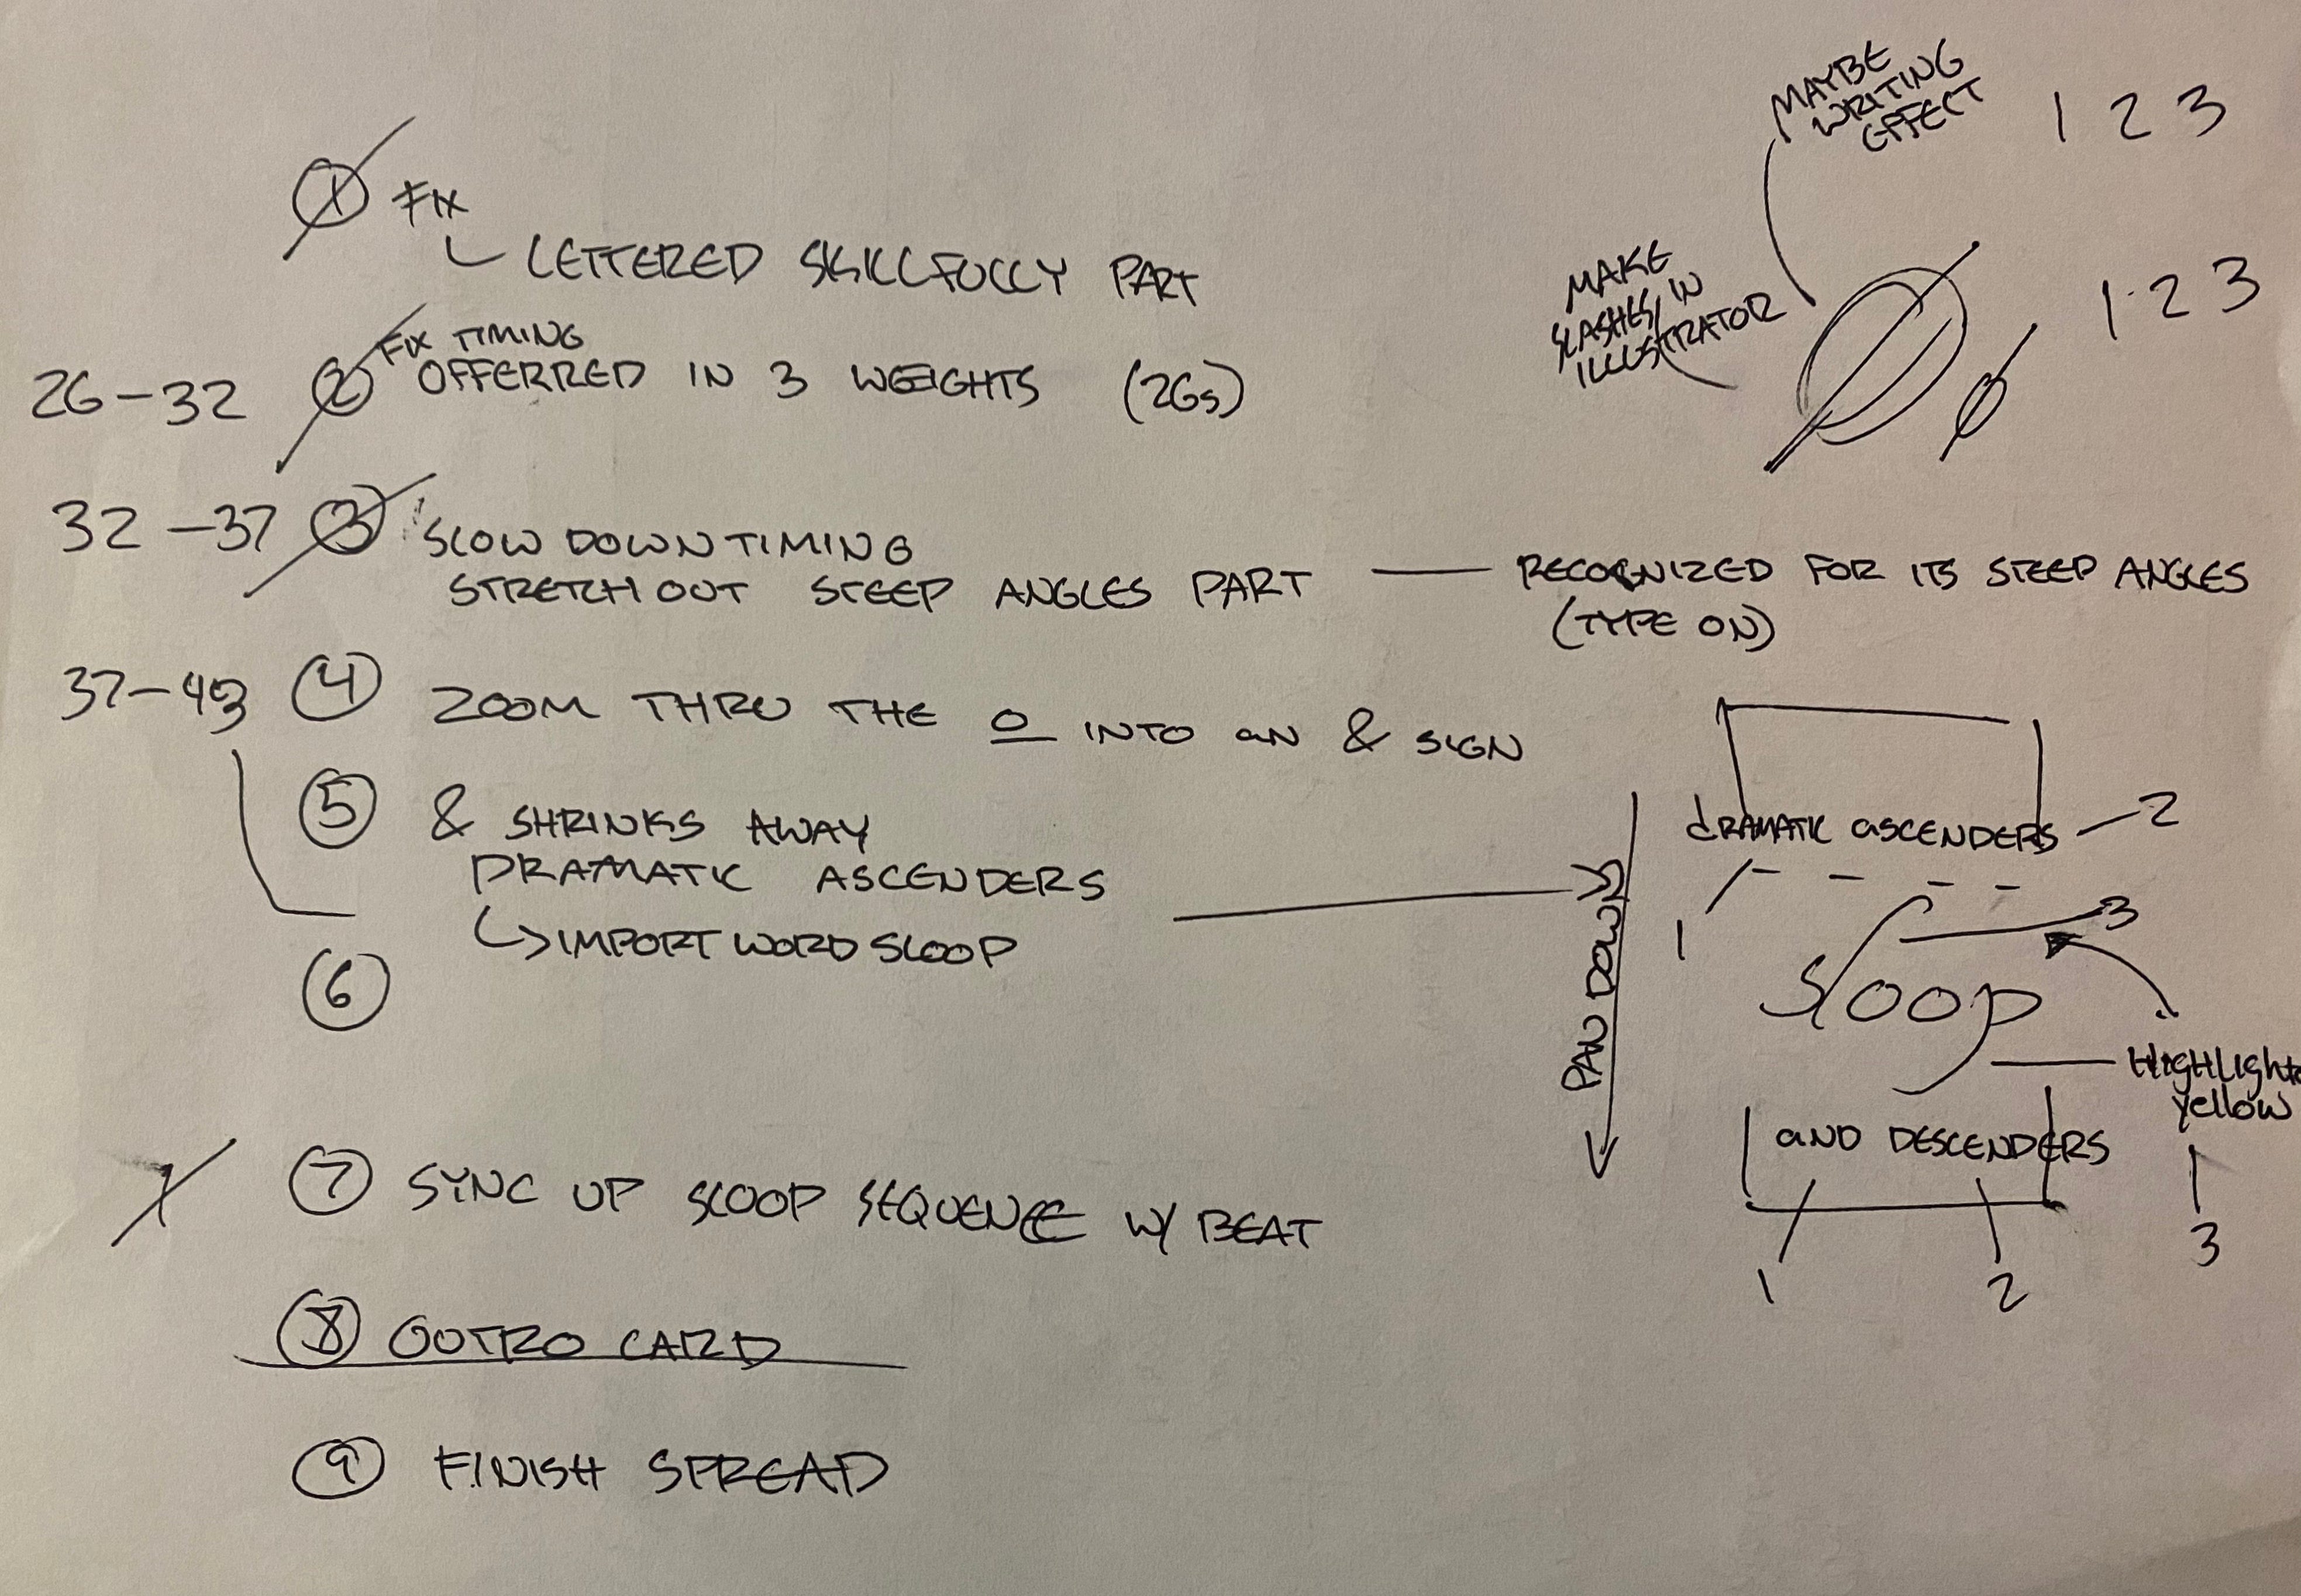 ① FIX
LETTERED SKILLFULLY PART
26-32 ② FIX TIMING
OFFERRED IN 3 WEIGHTS (26s)
32-37 ③ SLOW DOWN TIMING
STRETCH OUT STEEP ANGLES PART — RECOGNIZED FOR ITS STEEP ANGLES
(TYPE ON)
④ ZOOM THRU THE O INTO AN & SIGN
⑤ & SHRINKS AWAY
DRAMATIC ASCENDERS
↳ IMPORT WORD SLOOP
⑥
⑦ SYNC UP SLOOP SEQUENCE W/ BEAT
⑧ OUTRO CARD
⑨ FINISH SPREAD
MAYBE
WRITING
EFFECT
1 2 3
MAKE
SLASHES IN
ILLUSTRATOR
1 2 3
PAN DOWN
DRAMATIC ASCENDERS — 2
1
3
Sloop
HIGHLIGHT
yellow
AND DESCENDERS
1
2
3